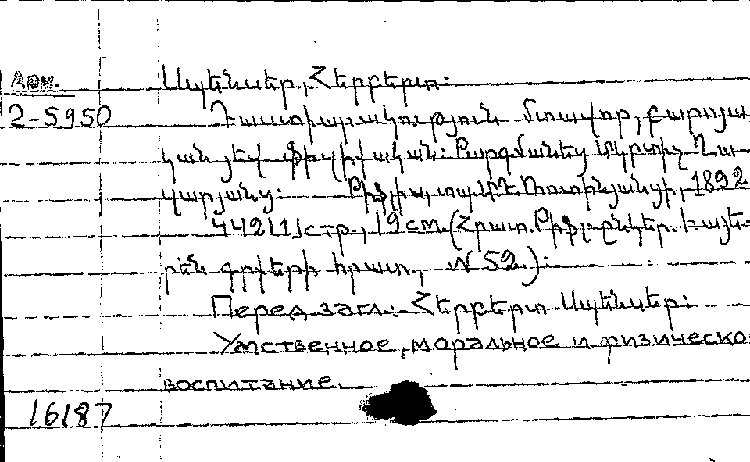 Арм.
2-5950
Սպենսեր, Հերբերտ:
Դաստիարակություն մտավոր, բարոյա
կան յեվ ֆիզիքական: Թարգմանեց Մկրտիչ Ղա
զարյանց: Թիֆլիս, տպ. Մ. Ռոտինյանցի, 1892
442[1] стр., 19 см. (Հրատ. Թիֆլ. ընկեր. հայե
րեն գրքերի հրատ., № 52.):
Перед загл.: Հերբերտ Սպենսեր:
Умственное, моральное и физическо
воспитание.
16187